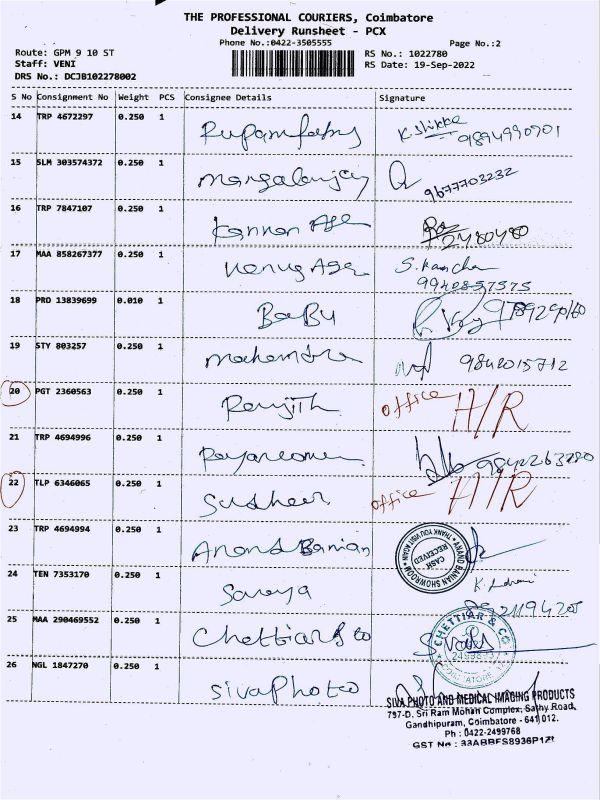 THE PROFESSIONAL COURIERS, Coimbatore
Delivery Runsheet - PCX
Phone No.:0422-3505555
Page No.:2
Route: GPM 9 10 ST
RS No.: 1022780
Staff: VENI
RS Date: 19-Sep-2022
DRS No.: DCJB102278002
S No Consignment No Weight PCS Consignee Details Signature
14 TRP 4672297 0.250 1
9894990901
15 SLM 303574372 0.250 1
9677703232
16 TRP 7847107 0.250 1 Kannan Age
2480480
17 MAA 858267377 0.250 1 Venug Age S. Kanchan
9940857575
18 PRO 13839699 0.010 1 BaBu
19 STY 803257 0.250 1 Mahendra 9842015712
20 PGT 2360563 0.250 1 Renjith office H/R
21 TRP 4694996 0.250 1
22 TLP 6346065 0.250 1 Sudheer office H/R
23 TRP 4694994 0.250 1 Anand Banian
ANAND BANIAN SHOWROOM
CASH RECEIVED
THANK YOU VISIT AGAIN
24 TEN 7353170 0.250 1 Saraya
25 MAA 290469552 0.250 1 Chettiar & co
CHETTIAR & CO
26 NGL 1847270 0.250 1 Siva Photoo
SIVA PHOTO AND MEDICAL IMAGING PRODUCTS
797-D, Sri Ram Mohan Complex, Sathy Road,
Gandhipuram, Coimbatore - 641 012.
Ph : 0422-2499768
GST No : 33ABBFS8936P1Zt